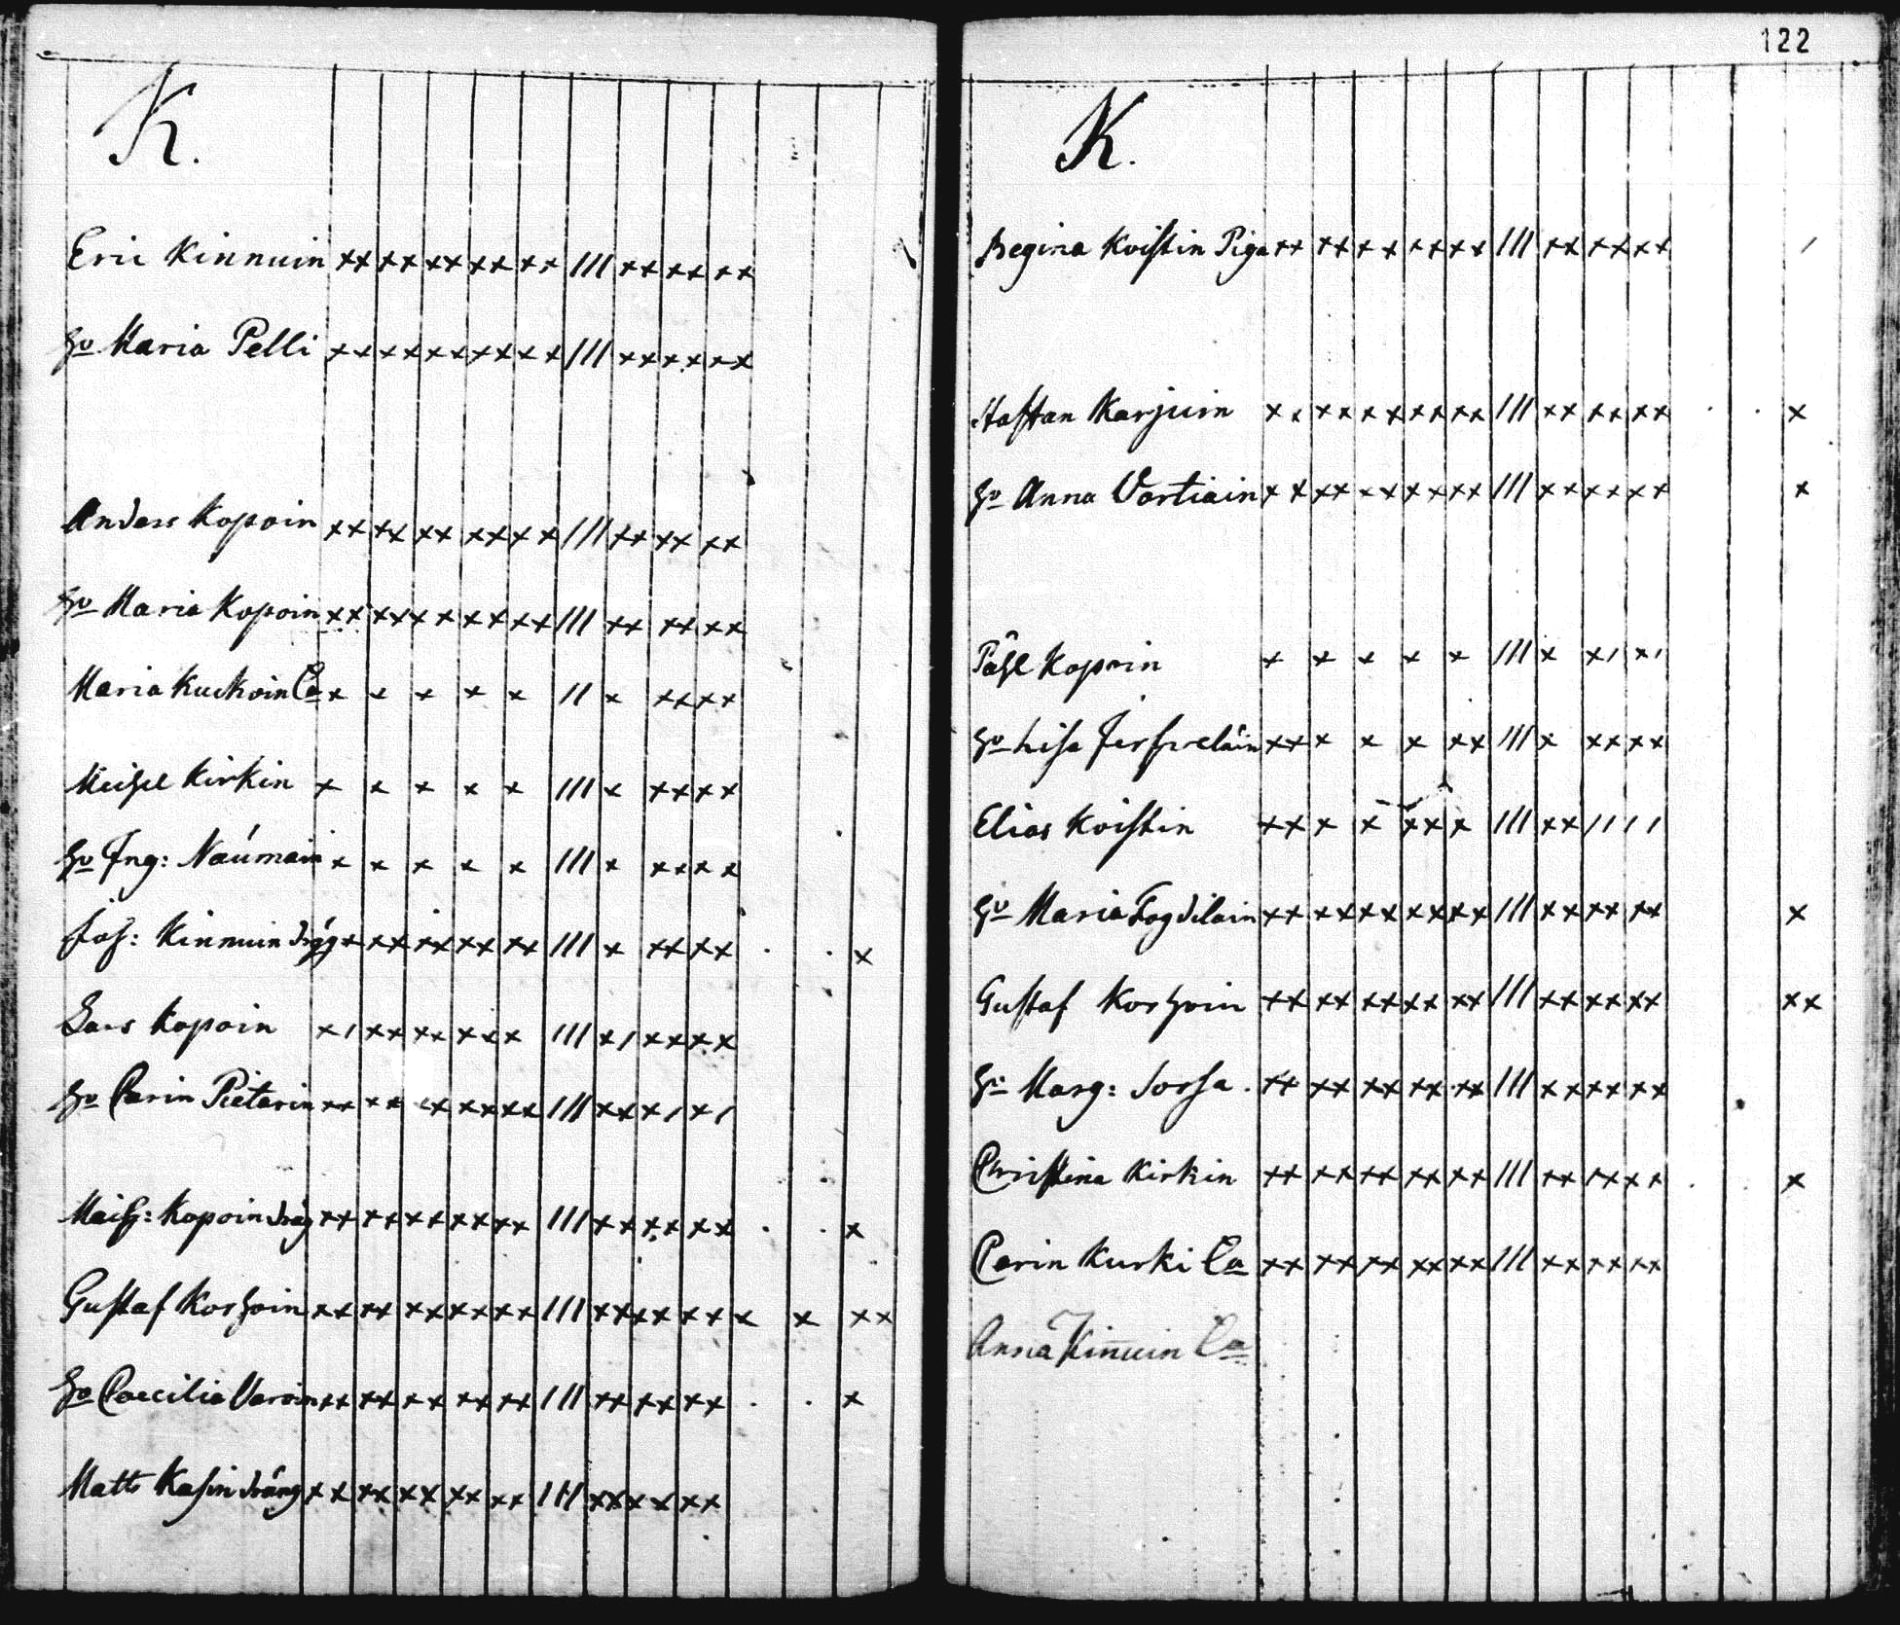 K.
Eric Kinnuin xx xx xx xx xx /// xx xx xx
Hu Maria Pelli xx xx xx xx xx /// xx xx xx
Anders Kopoin xx xx xx xx xx /// xx xx xx
Hu Maria Kopoin xx xx xx xx xx /// xx xx xx
Maria Kuckoin Ea x x x x x // x xx xx
Meihel Kirkin x x x x x /// x xx xx
Hu Ing: Naumain x x x x x /// x xx xx
Joh: Kinnuin dräg x xx xx xx xx /// x xx xx . . x
Lars Kopoin x/ xx xx xx x /// x/ xx xx
Hu Carin Pietarin xx xx xx xx xx /// xx x/ x/
Maih: Kopoin dräg xx xx xx xx xx /// xx xx xx . . x
Gustaf Korhoin xx xx xx xx xx /// xx xx xx x x xx
Hu Caecilia Varoin xx xx xx xx xx /// xx xx xx . . x
Matts Kasin dräng xx xx xx xx xx /// xx xx xx
122
K.
Regina Koistin Piga xx xx xx xx xx /// xx xx xx /
Staffan Karjuin xx xx xx xx xx /// xx xx xx . . x
Hu Anna Vartiain xx xx xx xx xx /// xx xx xx x
Påhl Kopoin x x x x x /// x x/ x/
Hu Lisa xx x x x xx /// x xx xx
Elias Koistin xx x x xx x /// xx // //
Hu Maria Togdilain xx xx xx xx xx /// xx xx xx x
Gustaf Korhoin xx xx xx xx xx /// xx xx xx xx
Hu Marg: Sorsa . xx xx xx xx xx /// xx xx xx
Christina Kirkin xx xx xx xx xx /// xx xx xx . . x
Carin Kurki Ea xx xx xx xx xx /// xx xx xx
Anna Kinnuin Ea